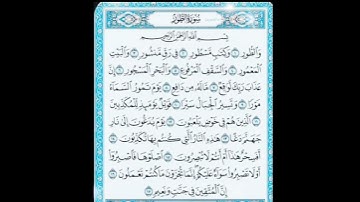 سورة الطور
بسم الله الرحمن الرحيم
والطور ۝ وكتاب مسطور ۝ في رق منشور ۝ والبيت
المعمور ۝ والسقف المرفوع ۝ والبحر المسجور ۝ إن
عذاب ربك لواقع ۝ ما له من دافع ۝ يوم تمور السماء
مورا ۝ وتسير الجبال سيرا ۝ فويل يومئذ للمكذبين
۝ الذين هم في خوض يلعبون ۝ يوم يدعون إلى نار
جهنم دعا ۝ هذه النار التي كنتم بها تكذبون ۝
أفسحر هذا أم أنتم لا تبصرون ۝ اصلوها فاصبروا
أو لا تصبروا سواء عليكم إنما تجزون ما كنتم تعملون ۝
إن المتقين في جنات ونعيم ۝